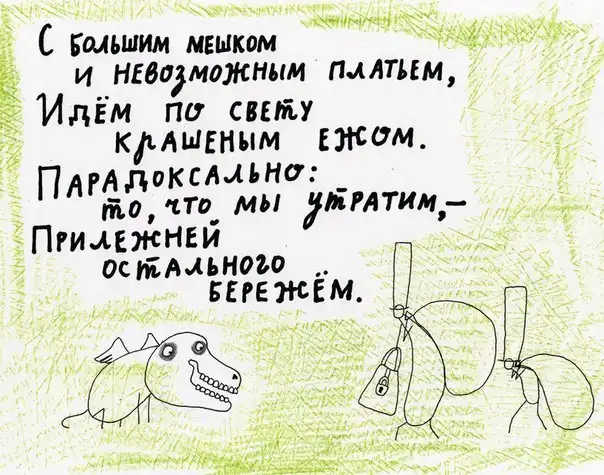 С большим мешком
и невозможным платьем,
Идём по свету
крашеным ежом.
Парадоксально:
то, что мы утратим,–
Прилежней
остального
бережём.